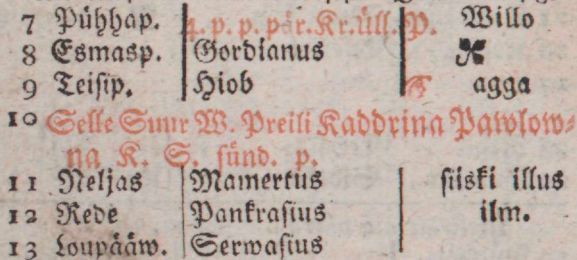 7 Pühhap. 4. p. p. pär. Kr. üll. P. Willo
8 Esmasp. Gordianus
9 Teisip. Hiob agga
10 Selle Suur W. Preili Kaddrina Pawlow-
na K. S. sünd. p.
11 Neljas Mamertus siiski illus
12 Rede Pankrasius ilm.
13 Loupääw. Serwasius